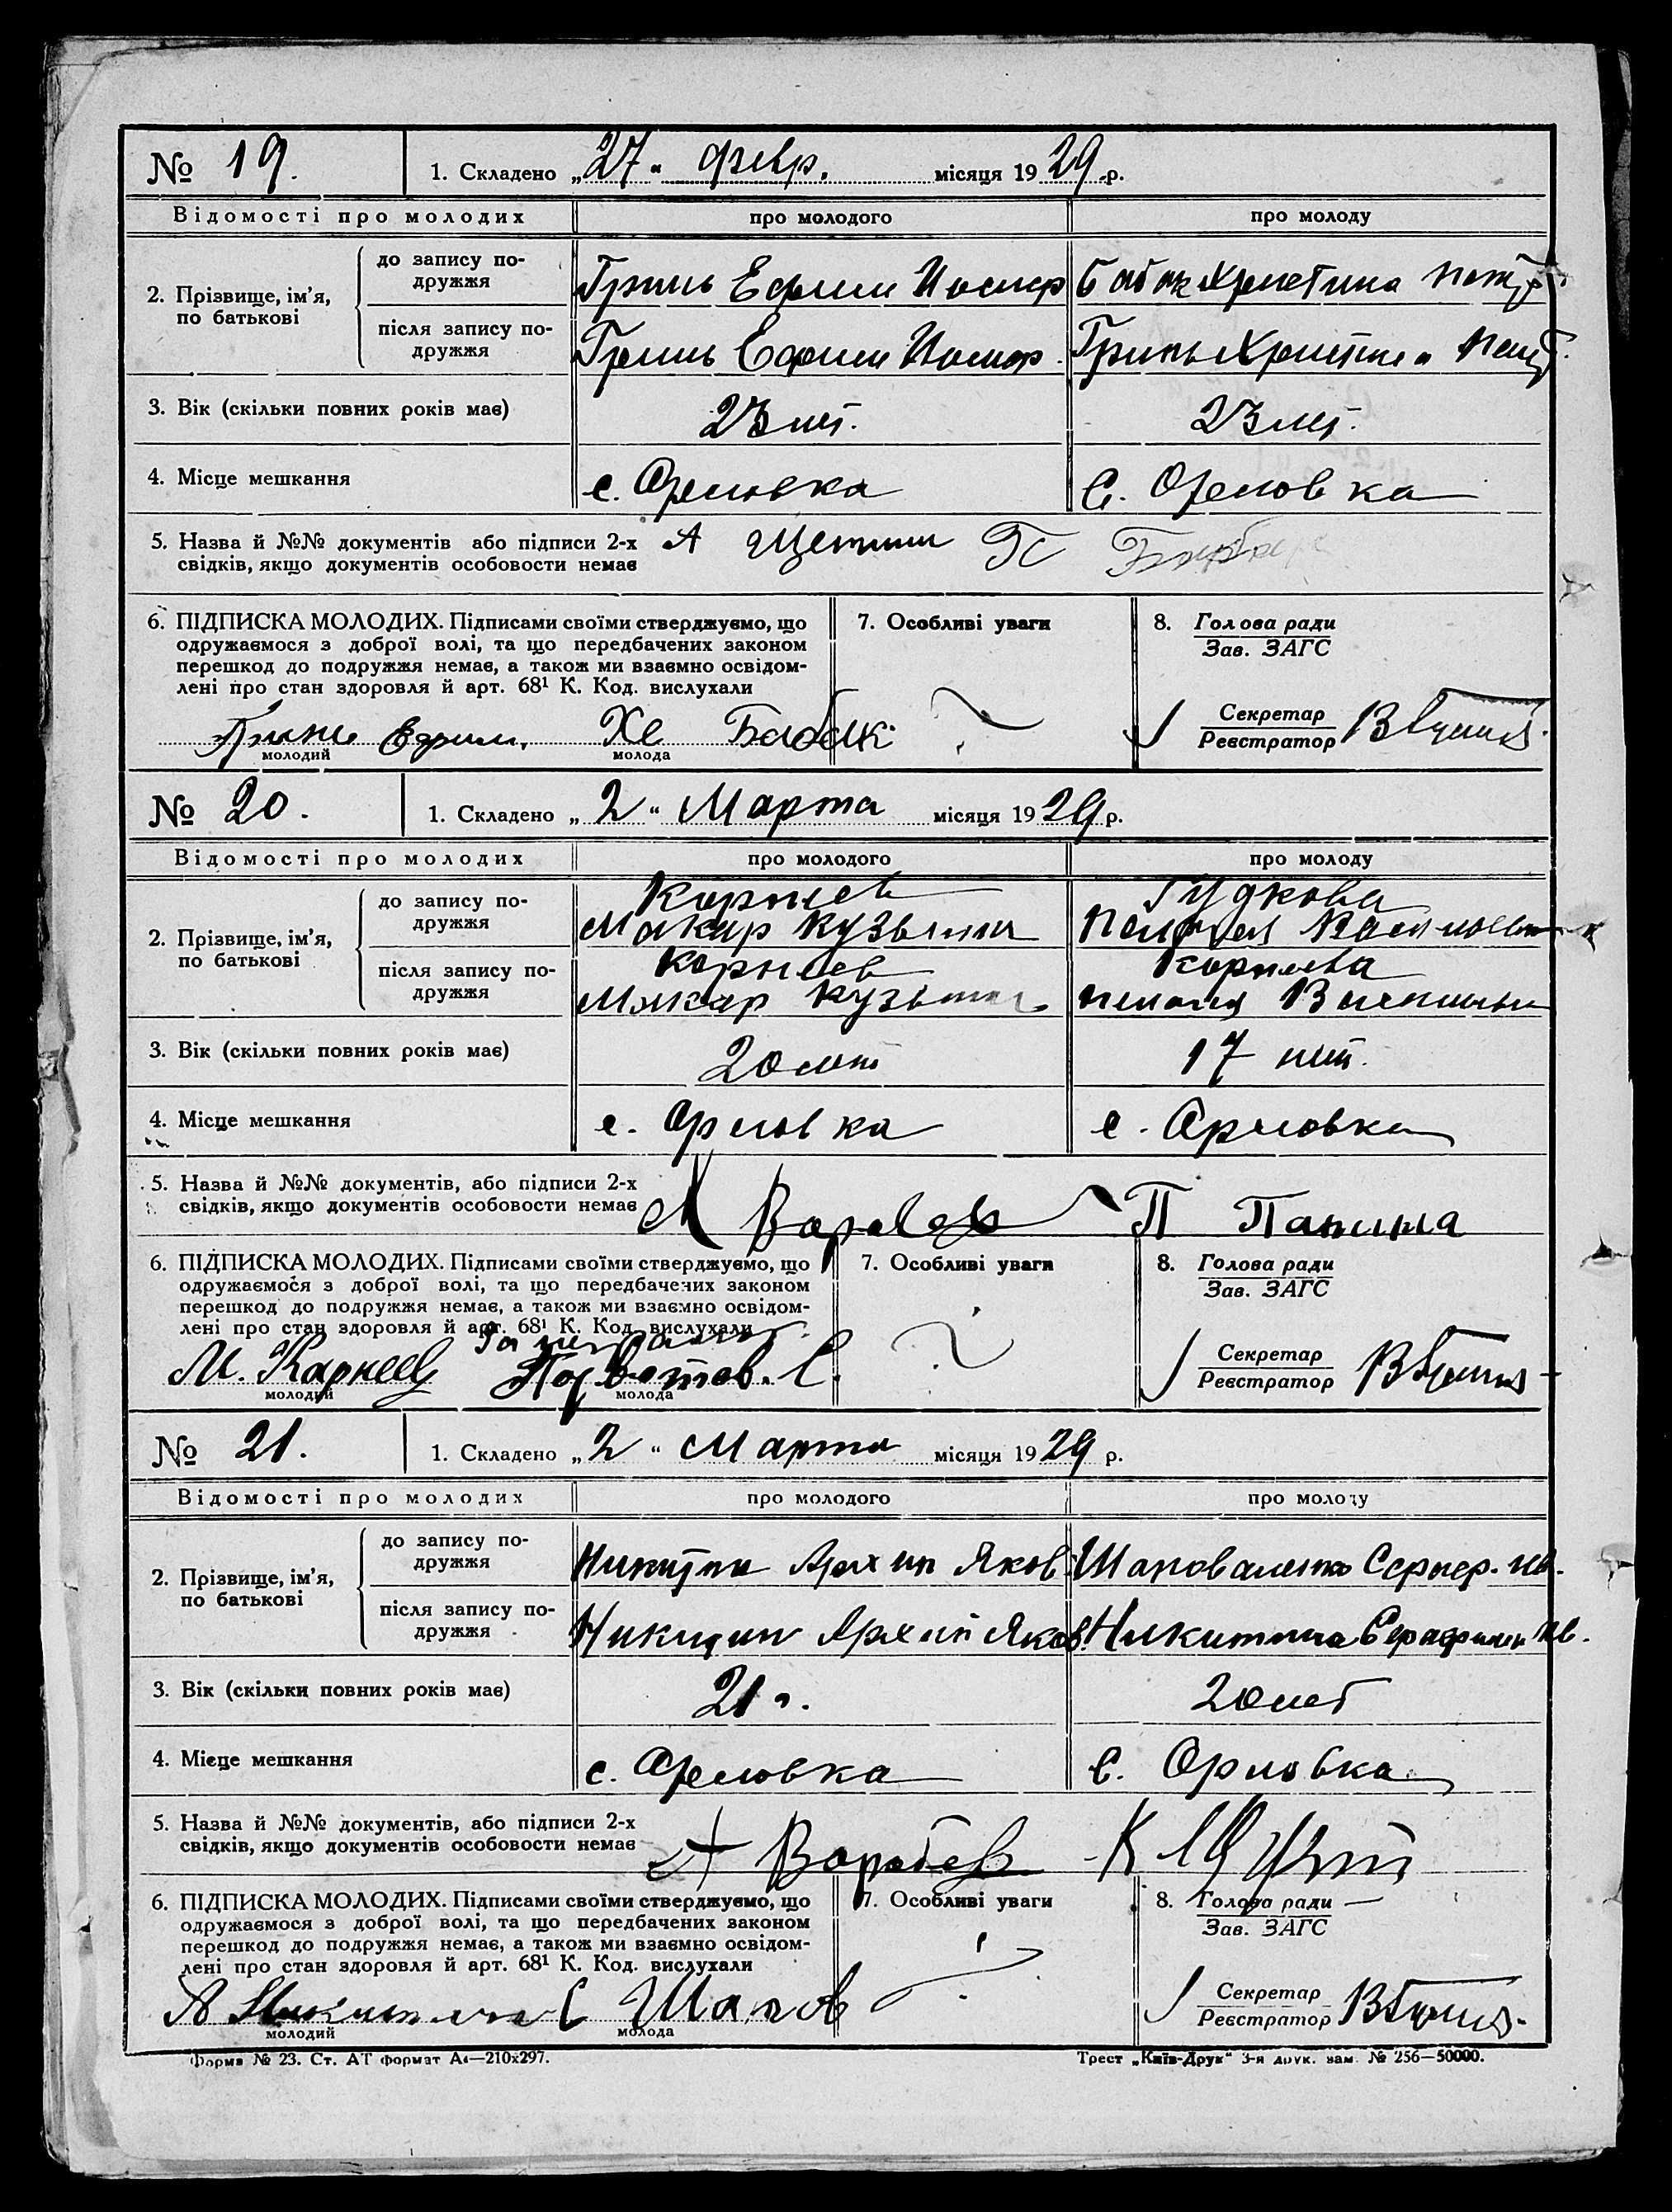 № 19. 1. Складено „27“ февр. місяця 1929 р.
Відомості про молодих про молодого про молоду
2. Прізвище, ім’я, по батькові
до запису подружжя Гринь Ефим Бабак Христина
після запису подружжя Гринь Ефим Гринь Христина
3. Вік (скільки повних років має) 23 лет. 23 лет.
4. Місце мешкання с. Орловка С. Орловка
5. Назва й №№ документів або підписи 2-х А
свідків, якщо документів особовости немає
6. ПІДПИСКА МОЛОДИХ. Підписами своїми стверджуємо, що 7. Особливі уваги 8. Голова ради
одружаємося з доброї волі, та що передбачених законом Зав. ЗАГС
перешкод до подружжя немає, а також ми взаємно освідом-
лені про стан здоровля й арт. 68¹ К. Код. вислухали
Гринь Ефим. Хе Бабак Секретар
молодий молода Реєстратор
№ 20. 1. Складено „2“ Марта місяця 1929 р.
Відомості про молодих про молодого про молоду
2. Прізвище, ім’я, по батькові
до запису подружжя Корнеев Гудкова
Макар Кузьмич
після запису подружжя Корнеев Корнеева
Макар Кузьмич
3. Вік (скільки повних років має) 20 лет 17 лет.
4. Місце мешкання с. Орловка с. Орловка
5. Назва й №№ документів, або підписи 2-х
свідків, якщо документів особовости немає А Воробев П Папина
6. ПІДПИСКА МОЛОДИХ. Підписами своїми стверджуємо, що 7. Особливі уваги 8. Голова ради
одружаємося з доброї волі, та що передбачених законом Зав. ЗАГС
перешкод до подружжя немає, а також ми взаємно освідом-
лені про стан здоровля й арт. 68¹ К. Код. вислухали
М. Карнеев Секретар
молодий молода Реєстратор
№ 21. 1. Складено „2“ Марта місяця 1929 р.
Відомості про молодих про молодого про молоду
2. Прізвище, ім’я, по батькові
до запису подружжя Никитин Архип Яков. Шаповаленко
після запису подружжя Никитин Архип Яков. Никитина Серафима Ив.
3. Вік (скільки повних років має) 21 г. 20 лет
4. Місце мешкання с. Орловка С. Орловка
5. Назва й №№ документів, або підписи 2-х
свідків, якщо документів особовости немає А Воробев К
6. ПІДПИСКА МОЛОДИХ. Підписами своїми стверджуємо, що 7. Особливі уваги 8. Голова ради
одружаємося з доброї волі, та що передбачених законом Зав. ЗАГС
перешкод до подружжя немає, а також ми взаємно освідом-
лені про стан здоровля й арт. 68¹ К. Код. вислухали
А Никитин С Шапов Секретар
молодий молода Реєстратор
Форма № 23. Ст. АТ формат А4—210х297. Трест „Київ-Друк“ 3-я друк. зам. № 256—50000.